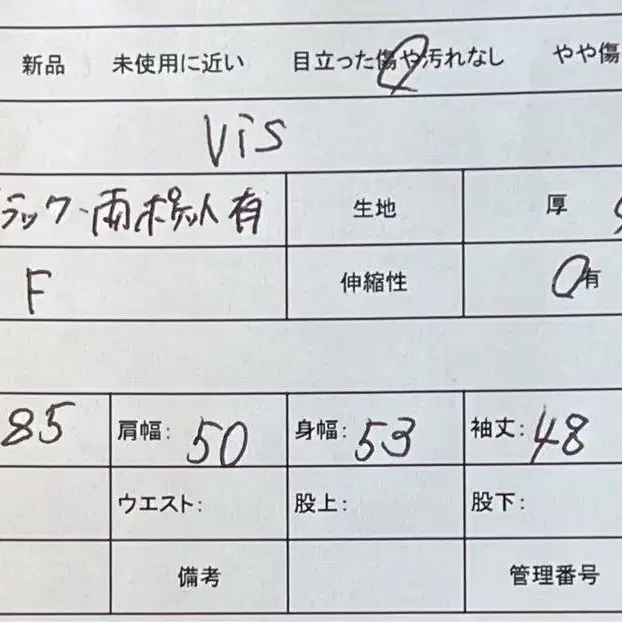 新品 未使用に近い 目立った傷や汚れなし やや傷
Vis
ラック・両ポケット有 生地 厚
F 伸縮性 有
85 肩幅: 50 身幅: 53 袖丈: 48
ウエスト: 股上: 股下:
備考 管理番号